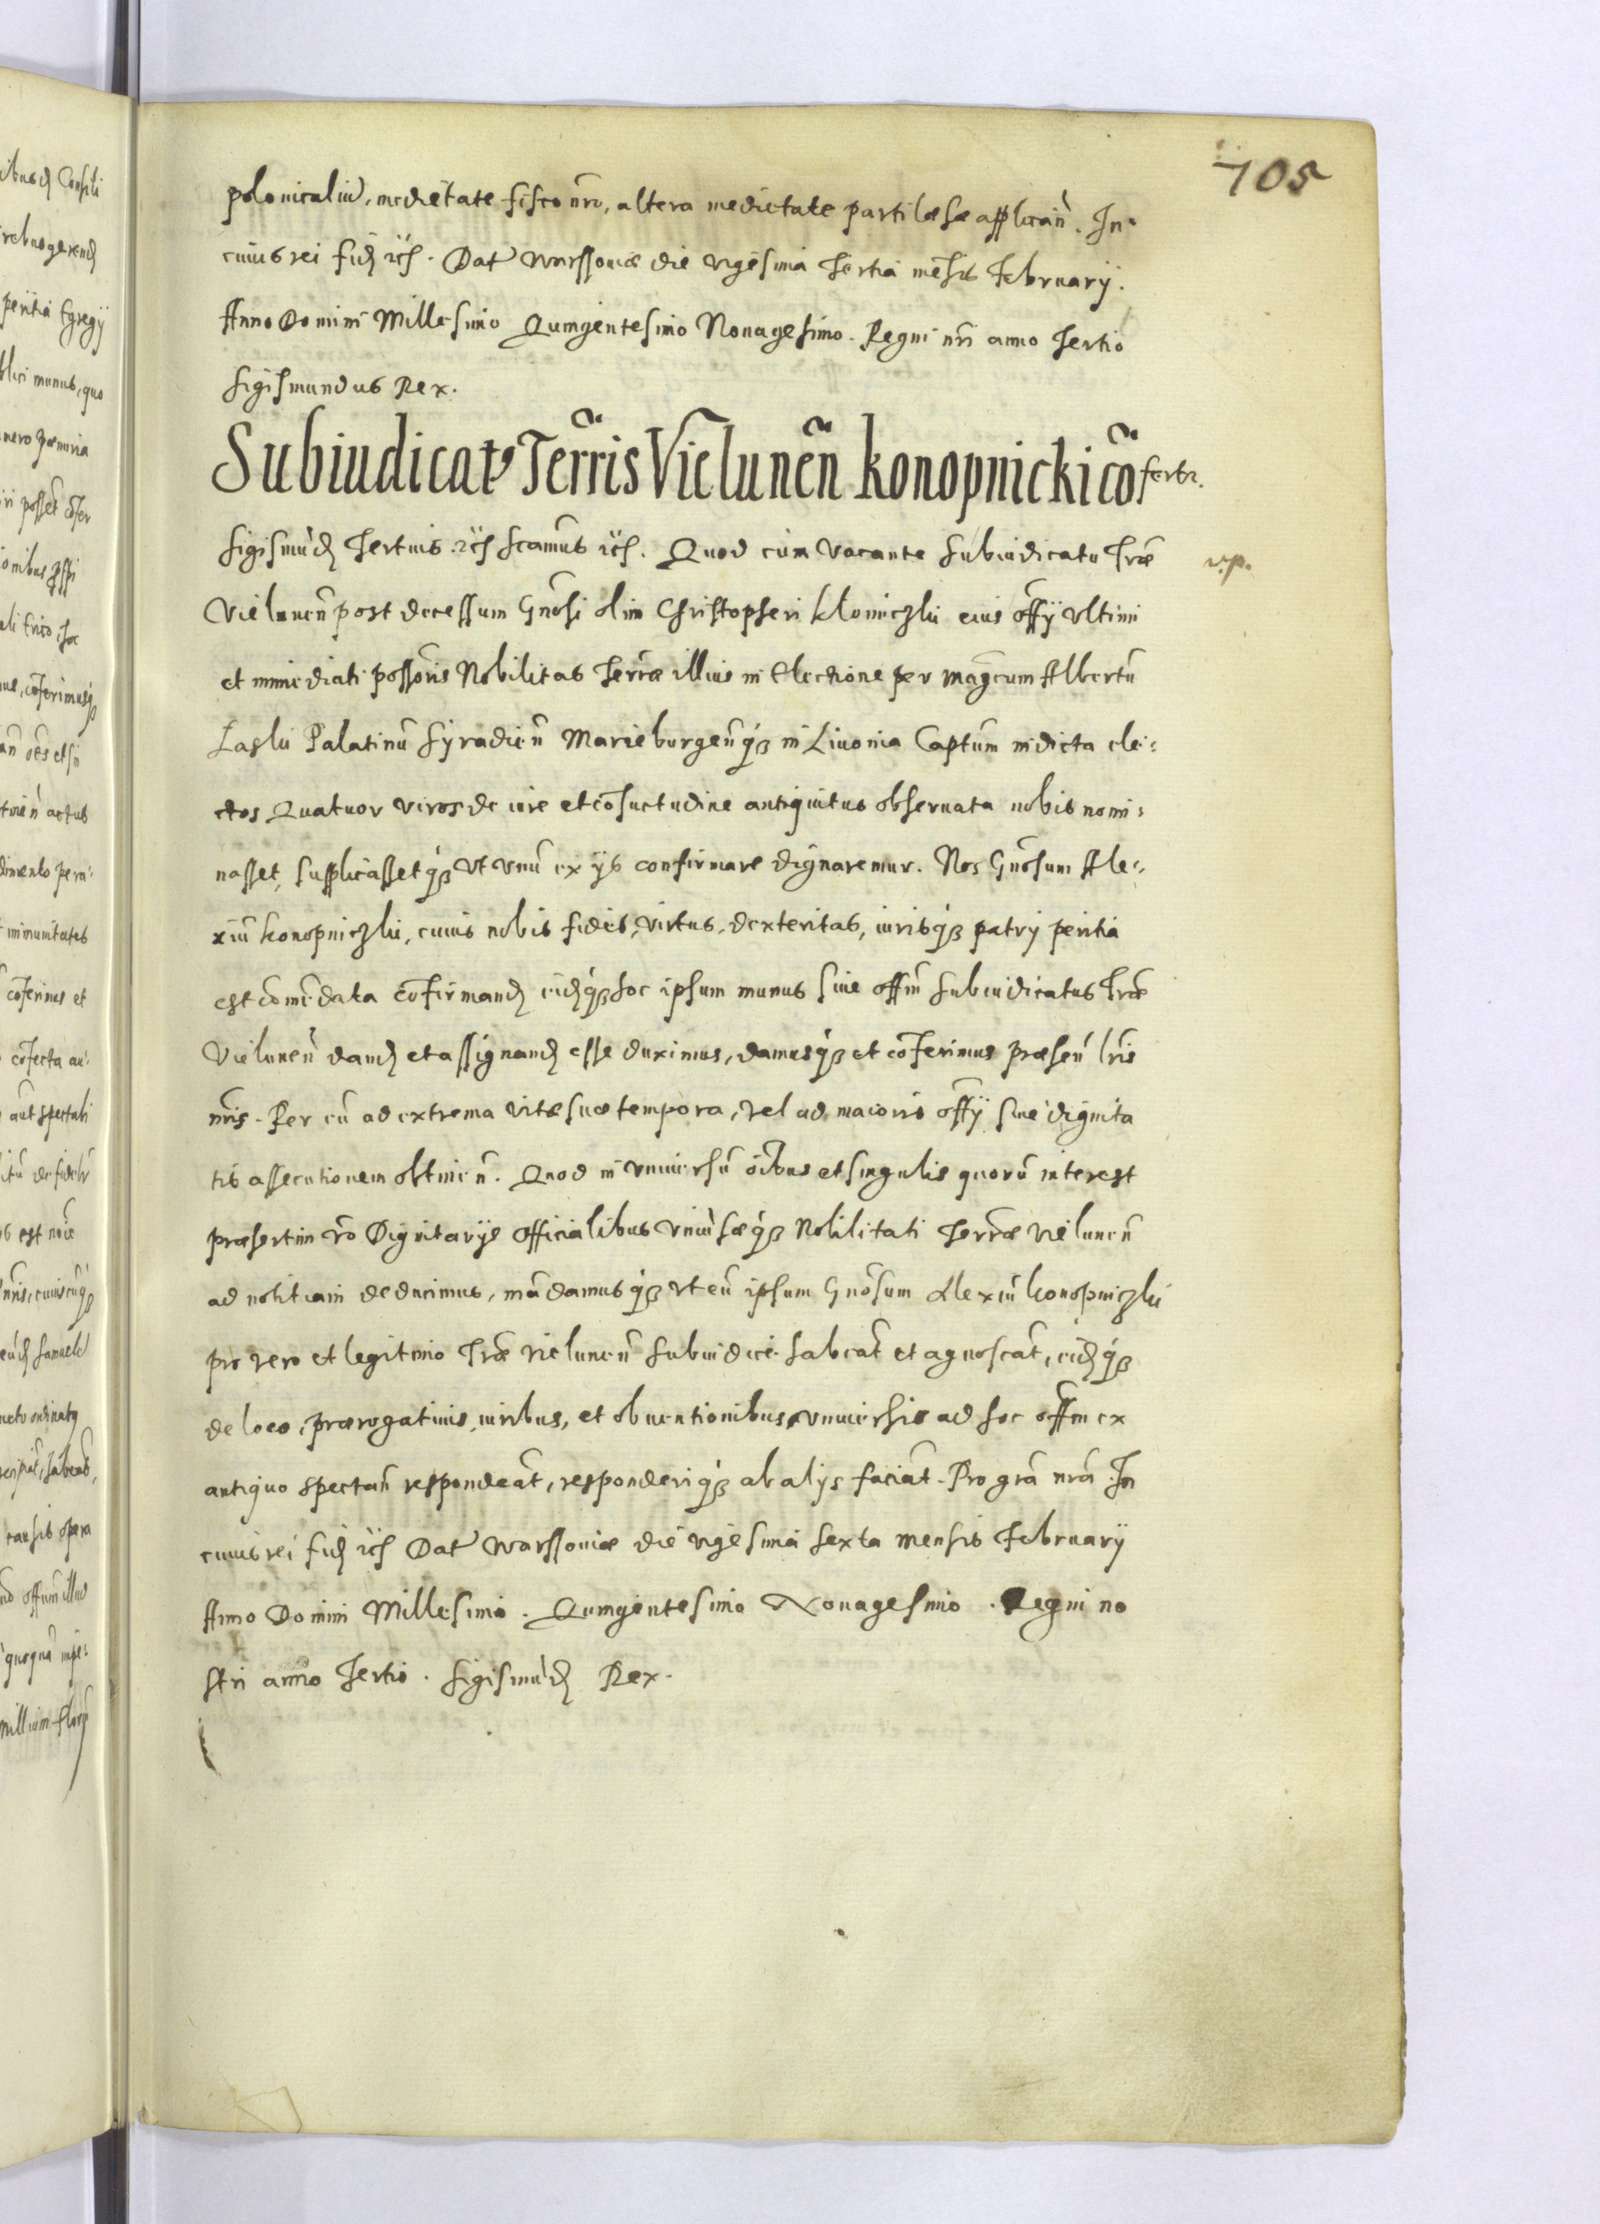 705
polonicaliũ, medietate fisco nr̃o, altera medietate parti læsæ applicañ. In
cuius rei fid. etc. Dat Warssouiæ die vigesima Tertia mensis February.
Anno Domini Millesimo Quingentesimo Nonagesimo. Regni nr̃i anno Tertio
Sigismundus Rex.
Subiudicat9 Ter̃ris Vielunẽn Konopnicki cõfertr.
Sigismũd Tertius etc. Scamus etc. Quod cum vacante Subiudicatu Tr̃æ
v.p.
Vielunẽn post decessum Gñosi olim Christopheri Klomiczki eius offy vltimi
et immediati possoris Nobilitas Terræ illius in Electione per Magcum Albertũ
Laski Palatinũ Syradieñ Marieburgeñq3 in Liuonia Captum indicta ele:
ctos Quatuor viros de iure et cõsuetudine antiquitus obseruata nobis nomi:
nasset, supplicassetq3 vt vnũ ex ys confirmare dignaremur. Nos Gñosum Ale:
xiũ Konopniczki, cuius nobis fides, virtus, dexteritas, iurisq3 patry peritia
est cõmẽdata cõfirmand, eidq3 hoc ipsum munus siue offm Subiudicatus Tr̃æ
Vieluneñ dand et assignand esse duximus, damusq3 et cõferimus præseñ lr̃is
nr̃is. Per eũ ad extrema vitæ suæ tempora, vel ad maioris offy siue dignita
tis assecutionem obtineñ. Quod in vniuersũ oĩbus et singulis quorũ interest
præsertim vo Dignitarys Officialibus vniuẽsæq3 Nobilitati Terræ vieluneñ
ad notitiam deducimus, mãdamusq3 vt eũ ipsum Gñosum Alexiũ Konopniczki
pro vero et legitimo Tr̃æ vieluneñ Subiudice habeãt et agnoscãt, eidq3
de loco, prærogatiuis, iuribus, et obuentionibus vniuersis ad hoc offm ex
antiquo spectañ respondeãt, responderiq3 ab alys faciãt. Pro grã nr̃a. In
cuius rei fid etc Dat Warssouiæ die vigesima sexta mensis February
Anno Domini Millesimo. Quingentesimo Nonagesimo. Regni no
stri anno Tertio. Sigismũd Rex.